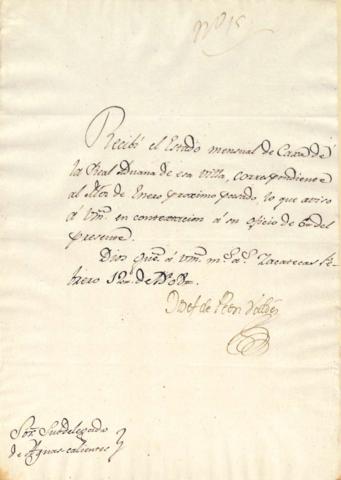 Nº 15
Recibí el Estado mensual de Caxa de
la Real Aduana de esa Villa, correspondiente
al Mes de Enero proximo pasado lo que aviso
á Vm. en contextacion á su oficio de 6 del
presente.
Dios gue. á Vm. ms. as. Zacatecas Fe-
brero 12 de
Sor. Subdelegado
de Aguas-calientes